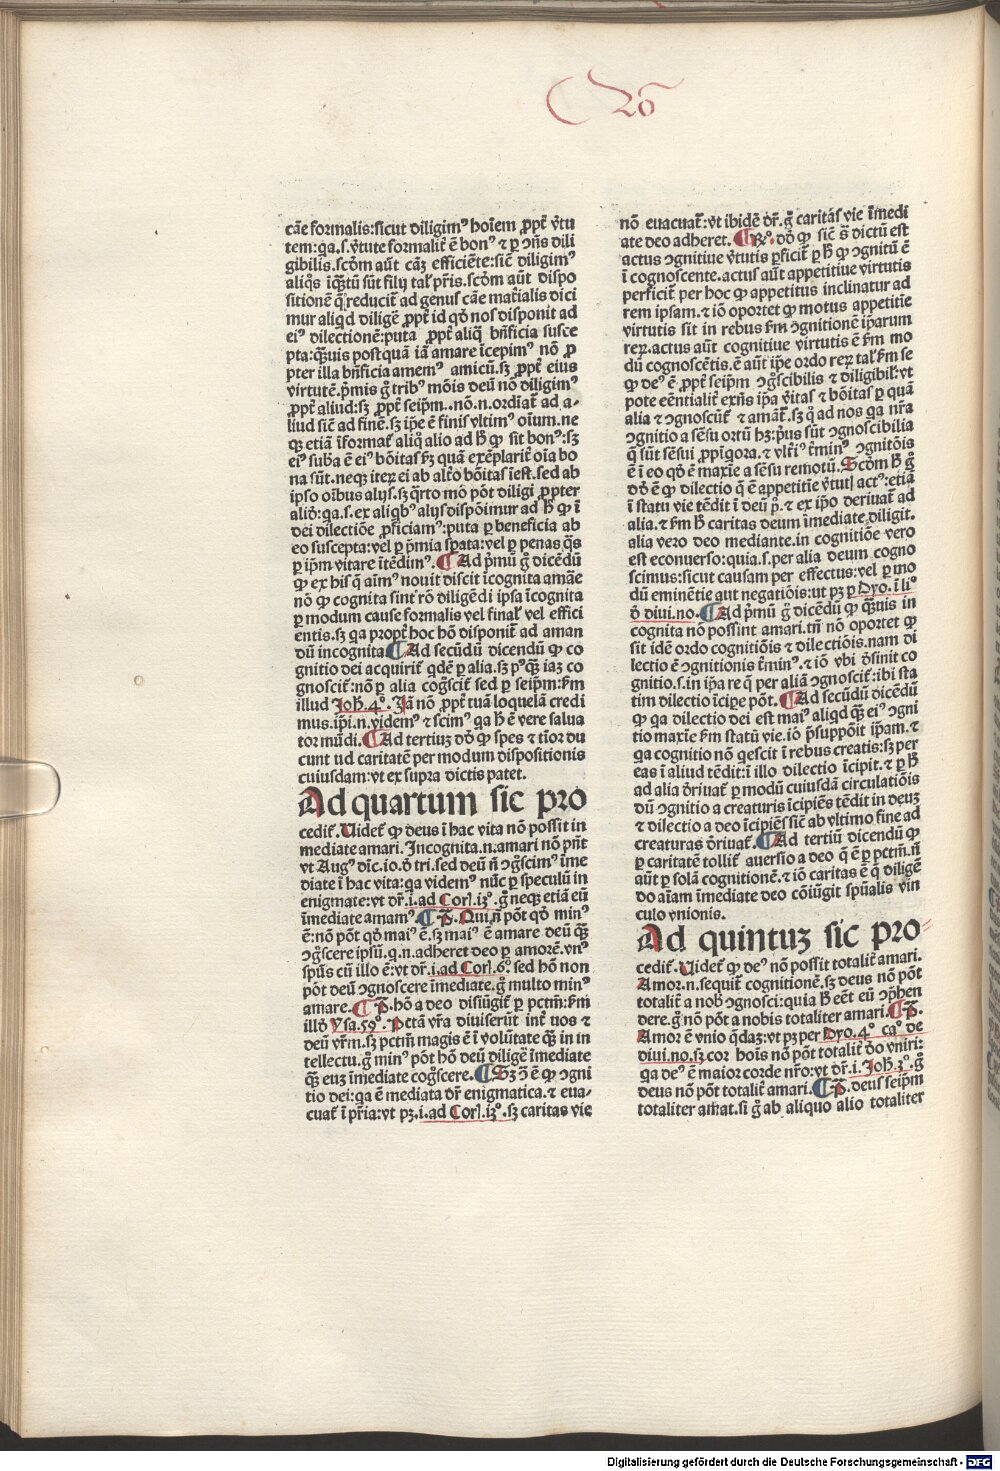 cāe formalis:sicut diligimꝰ hoīem ꝓpt̄ v̄tu
tem:qa.s.v̄tute formalit̄ ē bonꝰ ⁊ ꝑ ↄn̄s dili
gibilis.scd̓m aūt cāꝫ efficiēte:sic̄ diligimꝰ
aliq̓s īq̄ꝫtū sūt filij tal̓ pr̄is.scd̓m aūt dispo
sitionē q̄ reducit̄ ad genus cāe mat̄ialis dici
mur aliqd diligē ꝓpt̄ id qd̓ nos disponit ad
eiꝰ dilectionē:puta ꝓpt̄ aliq̄ bn̄ficia susce
pta:q̄ꝫuis postquā iā amare īcepimꝰ nō ꝓ
pter illa bn̄ficia amemꝰ amicū.sꝫ ꝓpt̄ eius
virtutē.p̄mis g̊ tribꝰ mōis deū nō diligimꝰ
ꝓpt̄ aliud:sꝫ ꝓpt̄ seip̄m..nō.n.ordīat̄ ad a-
liud sic̄ ad finē.sꝫ ip̄e ē finis vltimꝰ oīum.ne
qꝫ etiā īformat̄ aliq̄ alio ad h̄ ꝙ sit bonꝰ:sꝫ
eiꝰ sub̄a ē eiꝰ bōitas ſ̄ꝫ quā exēplarit̄ oīa bo
na sūt.neqꝫ iteꝝ ei ab alt̄o bōitas īest.sed ab
ipso oībus alijs.sꝫ q̄rto mō pōt diligi ꝓpter
aliō:qa.s.ex aliqbꝰ alijs dispōimur ad h̄ ꝙ ī
dei dilectiōe ꝓficiamꝰ:puta ꝑ beneficia ab
eo suscepta:vel ꝑ p̄mia sꝑata:vel ꝑ penas q̄s
ꝑ ip̄m vitare ītēdimꝰ. ¶ Ad p̄mū g̊ dicēdū
ꝙ ex his q̄ aīmꝰ nouit discit īcognita amāe
nō ꝙ cognita sint rō diligēdi ipsa īcognita
ꝑ modum cause formalis vel final̓ vel effici
entis.sꝫ qa propt̄ hoc hō disponit̄ ad aman
dū incognita ¶ Ad secūdū dicendū ꝙ co
gnitio dei acquirit̄ qdē ꝑ alia.sꝫ pꝰq̄ꝫ iaꝫ co
gnoscit̄:nō ꝑ alia cog̊scit̄ sed ꝑ seip̄m:ſ̄m
illud Joh̄.4°. Jā nō ꝓpt̄ tuā loquelā credi
mus.ip̄i.n.videmꝰ ⁊ scimꝰ qa h̄ ē vere salua
tor mūdi. ¶ Ad tertiuꝫ dd̓ ꝙ spes ⁊ tīor du
cunt ud caritatē per modum dispositionis
cuiusdam:vt ex supra dictis patet.
Ad quartum sic pro
cedit̄. Uidet̄ ꝙ deus ī hac vita nō possit in
mediate amari. Incognita.n.amari nō pn̄t
vt Augꝰ dīc.io.d̓ tri.sed deū n̄ ↄg̊scimꝰ īme
diate ī hac vita:qa videmꝰ nūc ꝑ speculū in
enigmate:vt dr̄.i.ad Corī.iꝫ°.g̊ neqꝫ etiā eū
īmediate amamꝰ. ¶ P̄. Qui n̄ pōt qd̓ minꝰ
ē:nō pōt qd̓ maiꝰ ē.sꝫ maiꝰ ē amare deū q̄ꝫ
ↄg̊scere ipsū.q.n.adheret deo ꝑ amorē.vnꝰ
spūs cū illo ē:vt dr̄.i.ad Corī.6° sed hō non
pōt deū ↄgnoscere īmediate.g̊ multo minꝰ
amare. ¶ P̄.hō a deo disiūgit̄ ꝑ pctm̄:ſ̄m
illd̓ Ysa.59°. Pctā vr̄a diuiserūt int̄ uos ⁊
deū vr̄m.sꝫ pctm̄ magis ē ī volūtate q̄ꝫ in in
tellectu.g̊ minꝰ pōt hō deū diligē īmediate
q̄ꝫ euꝫ īmediate cog̊scere. ¶ Sꝫ ↄ̄ ē ꝙ ↄgni
tio dei:qa ē mediata dr̄ enigmatica.⁊ eua-
cuat̄ ī pr̄ia:vt pꝫ.i.ad Corī.iꝫ°.sꝫ caritas vie
nō euacuat̄:vt ibidē dr̄.g̊ caritas vie īmedi
ate deo adheret. ¶ R°.dd̓ ꝙ sic̄ s̄ dictū est
actus ↄgnitiue v̄tutis ꝑficit̄ ꝑ h̄ ꝙ ↄgnitū ē
ī cognoscente.actus aūt appetitiue virtutis
perficit̄ per hoc ꝙ appetitus inclinatur ad
rem ipsam.⁊ iō oportet ꝙ motus appetitīe
virtutis sit in rebus ſ̄m ↄgnitionē ip̄arum
reꝝ.actus aūt cognitiue virtutis ē ſ̄m mo
dū cognoscētis.ē aūt ip̄e ordo reꝝ tal̓ ſ̄m se
ꝙ deꝰ ē ꝓpt̄ seip̄m ↄg̊scibilis ⁊ diligibil̓:vt
pote eēntialit̄ exn̄s ip̄a v̄itas ⁊ bōitas ꝑ quā
alia ⁊ ↄgnoscūt̄ ⁊ amāt̄.sꝫ q̊ ad nos qa nr̄a
ↄgnitio a sēsu ortū hꝫ:pͥus sūt ↄgnoscibilia
q̄ sūt sēsui ꝓpīqiora.⁊ vlt̄i° t̄minꝰ ↄgnitōis
ē ī eo qd̓ ē maxīe a sēsu remotū. Scd̓m h̄ g̊
dd̓ ē ꝙ dilectio q̄ ē appetitīe v̄tut̄ actꝰ:etiā
ī statu vie tēdit ī deū pͥ.⁊ ex ip̄o deriuat̄ ad
alia.⁊ ſ̄m h̄ caritas deum īmediate diligit.
alia vero deo mediante.in cognitiōe vero
est econuerso:quia.s.per alia deum cogno
scimus:sicut causam per effectus:vel ꝑ mo
dū eminētie aut negatiōis:ut pꝫ ꝑ Dyo.ī li°
d̓ diui.no. ¶ Ad p̄mū g̊ dicēdū ꝙ q̄ꝫuis in
cognita nō possint amari.tn̄ nō oportet ꝙ
sit idē ordo cognitiōis ⁊ dilectiōis.nam di
lectio ē ↄgnitionis t̄minꝰ.⁊ iō vbi d̓sinit co
gnitio.s.in ip̄a re q̄ per aliā ↄgnoscit̄:ibi sta
tim dilectio īcipe pōt. ¶ Ad secūdū dicēdū
ꝙ qa dilectio dei est maiꝰ aliqd q̄ꝫ eiꝰ ↄgni
tio maxīe ſ̄m statū vie.iō p̄suppōit ip̄am.⁊
qa cognitio nō qescit ī rebus creatis:sꝫ per
eas ī aliud tēdit:ī illo dilectio īcipit.⁊ ꝑ h̄
ad alia d̓riuat̄ ꝑ modū cuiusdā circulatiōis
dū ↄgnitio a creaturis īcipiēs tēdit in deuꝫ
⁊ dilectio a deo īcipiēs sic̄ ab vltimo fine ad
creaturas d̓riuat̄. ¶ Ad tertiū dicendū ꝙ
ꝑ caritatē tollit̄ auersio a deo q̄ ē ꝑ pctm̄.n̄
aūt ꝑ solā cognitionē.⁊ iō caritas ē q̄ diligē
do aīam īmediate deo cōiūgit spūalis vin
culo vnionis.
Ad quintuꝫ sic pro
cedit̄. Uidet̄ ꝙ deꝰ nō possit totalit̄ amari.
Amor.n.sequit̄ cognitionē.sꝫ deus nō pōt
totalit̄ a nob̄ ↄgnosci:quia h̄ eēt eū ↄp̄hen
dere.g̊ nō pōt a nobis totaliter amari. ¶ P̄.
Amor ē vnio q̄daꝫ:vt pꝫ per Dyo.4° ca° de
diui.no.sꝫ cor hoīs nō pōt totalit̄ d̓o vniri:
qa deꝰ ē maior corde nr̄o:vt dr̄.i. Joh̄.3°.g̊
deus nō pōt totalit̄ amari. ¶ P̄.deus seip̄m
totaliter amat.si g̊ ab aliquo alio totaliter
Digitalisierung gefördert durch die Deutsche Forschungsgemeinschaft - DFG